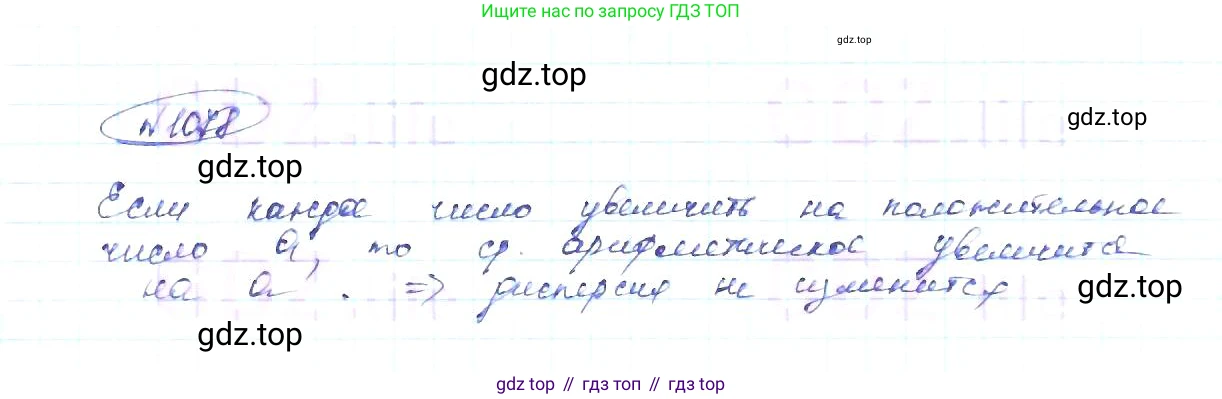 Ищите нас по запросу ГДЗ ТОП
gdz.top
gdz.top
gdz.top
№1078
gdz.top
Если каждое число увеличить на положительное
число a, то ср. арифметическое увеличится
на a. => дисперсия не изменится
gdz.top
gdz.top
gdz top // гдз топ // гдз top